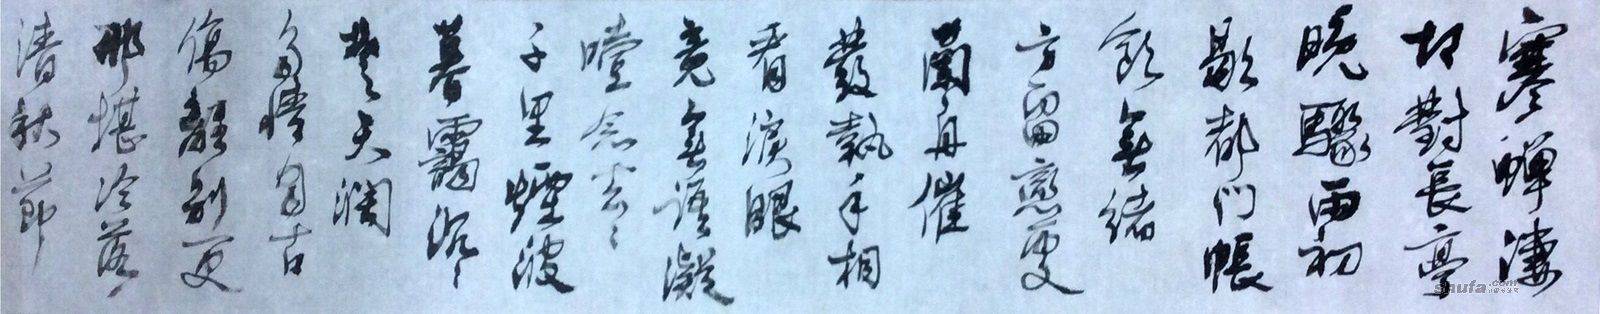 寒蟬淒
切對長亭
晚驟雨初
歇都門帳
飲無緒
方留戀處
蘭舟催
發執手相
看淚眼
竟無語凝
噎念去々
千里煙波
暮靄沉々
楚天濶
多情自古
傷離別更
那堪冷落
清秋節
shufa.com